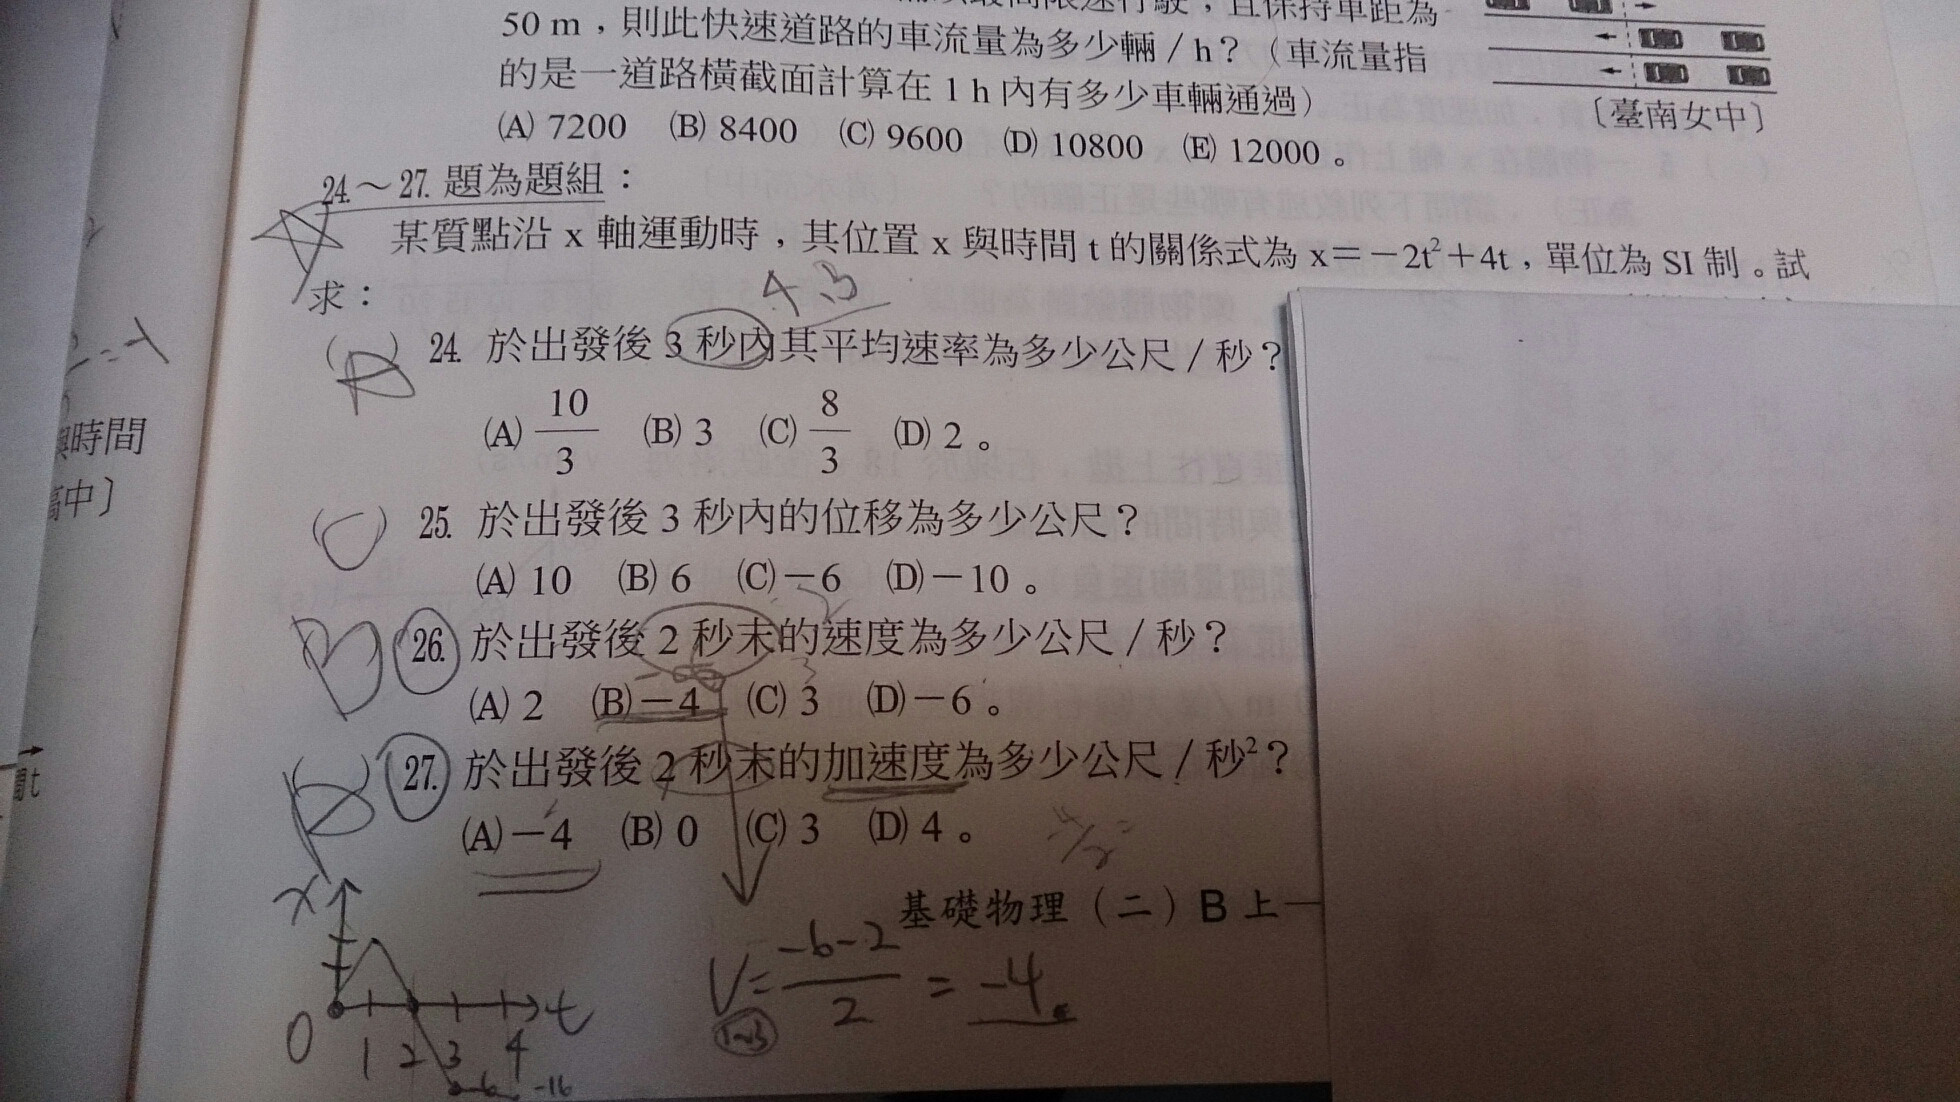 速行駛，且保持車距為
50 m，則此快速道路的車流量為多少輛／h？（車流量指
的是一道路橫截面計算在 1 h 內有多少車輛通過）
〔臺南女中〕
(A) 7200 (B) 8400 (C) 9600 (D) 10800 (E) 12000。
24.～27. 題為題組：
某質點沿 x 軸運動時，其位置 x 與時間 t 的關係式為 x＝－2t²＋4t，單位為 SI 制。試
求：
24. 於出發後 3 秒內其平均速率為多少公尺／秒？
(A) 10/3 (B) 3 (C) 8/3 (D) 2。
(C) 25. 於出發後 3 秒內的位移為多少公尺？
(A) 10 (B) 6 (C)－6 (D)－10。
26. 於出發後 2 秒末的速度為多少公尺／秒？
(A) 2 (B)－4 (C) 3 (D)－6。
27. 於出發後 2 秒末的加速度為多少公尺／秒²？
(A)－4 (B) 0 (C) 3 (D) 4。
基礎物理（二）B 上－
V = -6-2/2 = -4
x
0 1 2 3 4 t
-6 -16
時間
中〕